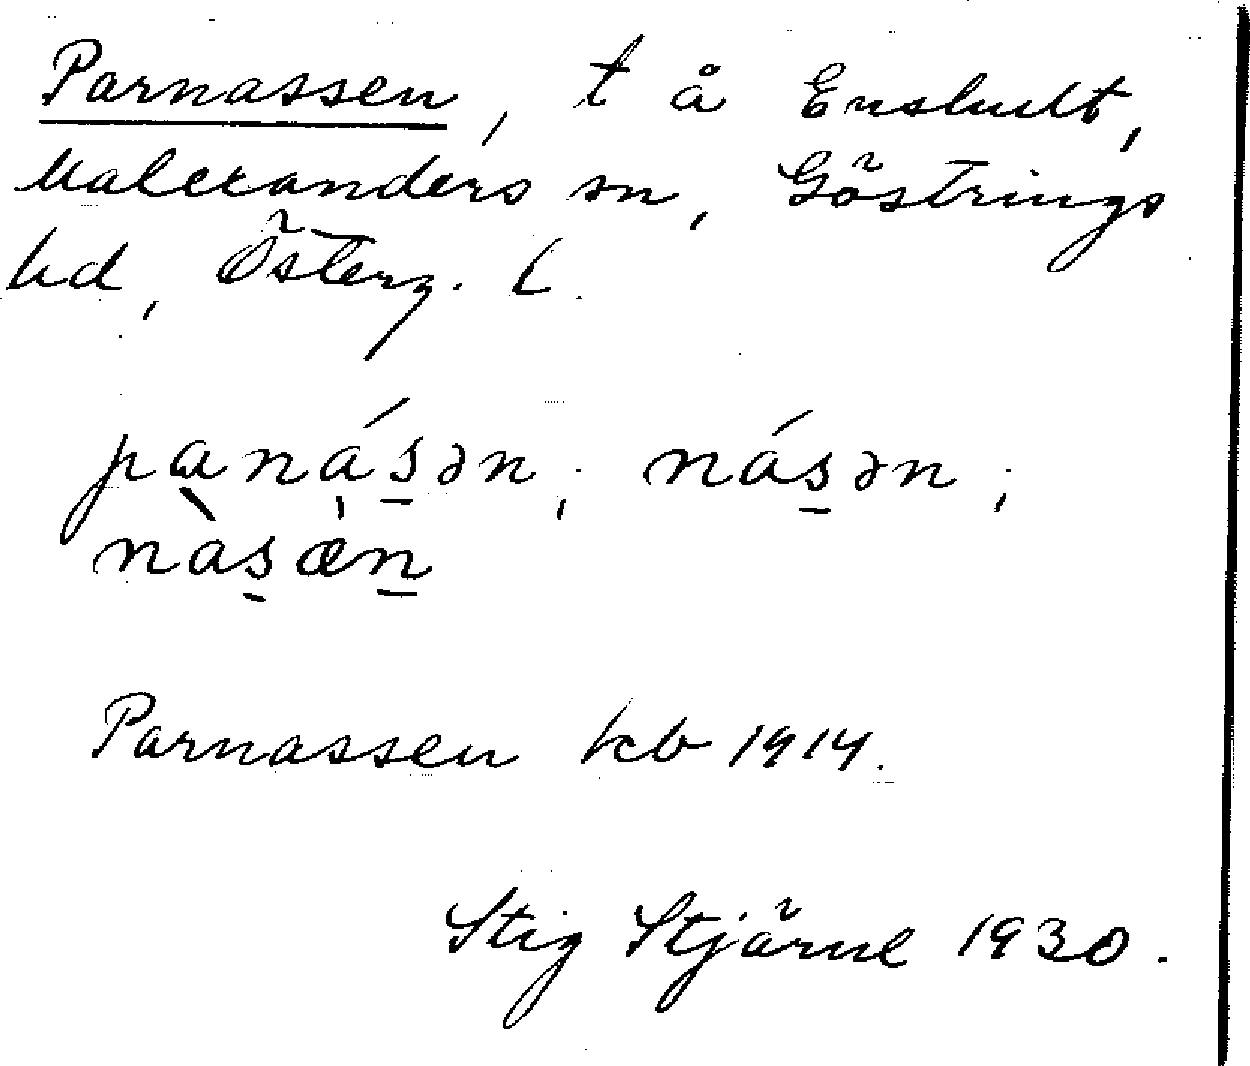 Parnassen, t å Enshult,
Malexanders sn, Göstrings
hd, Österg. l.
panásən; násən;
nàsæn
Parnassen kb 1914.
Stig Stjärne 1930.